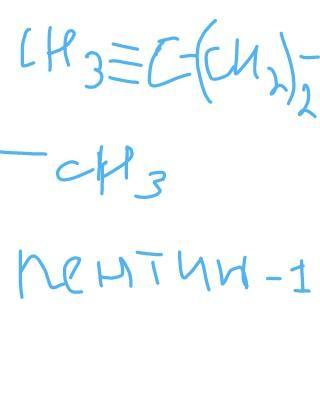 CH₃≡C-(CH₂)₂-
-CH₃
пентин-1